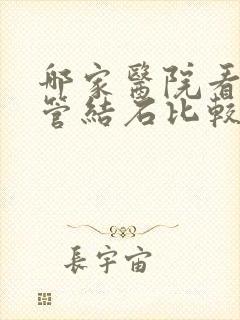 哪家醫院看
管結石比較
長宇宙